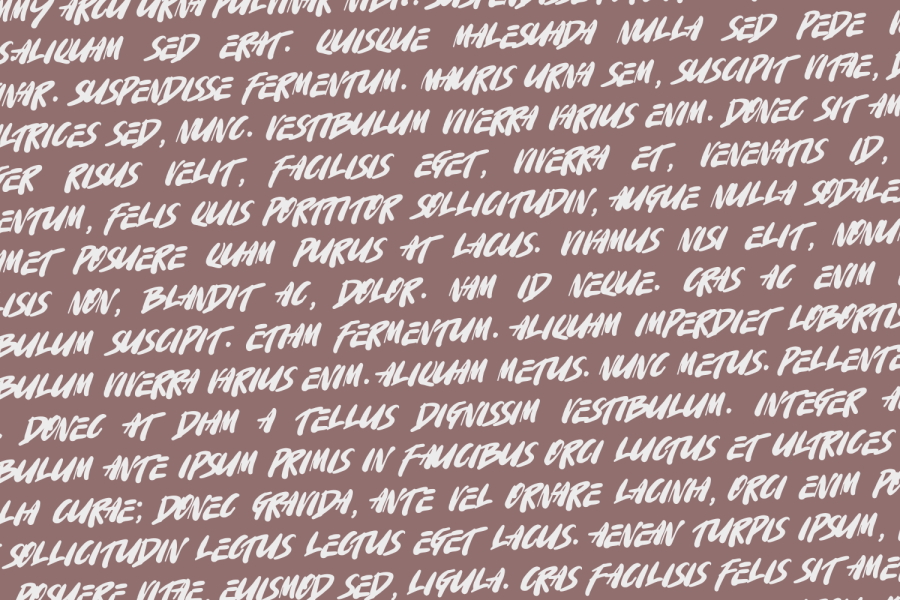 ARCU URNA PULVINAR
ALIQUAM SED ERAT. QUISQUE MALESUADA NULLA SED PEDE
SUSPENDISSE FERMENTUM. MAURIS URNA SEM, SUSCIPIT VITAE,
SED, NUNC. VESTIBULUM VIVERRA VARIUS ENIM. DONEC SIT
RISUS VELIT, FACILISIS EGET, VIVERRA ET, VENENATIS ID,
FELIS QUIS PORTTITOR SOLLICITUDIN, AUGUE NULLA SODALES
AMET POSUERE QUAM PURUS AT LACUS. VIVAMUS NISI ELIT,
NON, BLANDIT AC, DOLOR. NAM ID NEQUE. CRAS AC ENIM
BULUM SUSCIPIT. ETIAM FERMENTUM. ALIQUAM IMPERDIET LOBORTIS
BULUM VIVERRA VARIUS ENIM. ALIQUAM METUS. NUNC METUS. PELLENTE
. DONEC AT DIAM A TELLUS DIGNISSIM VESTIBULUM. INTEGER
BULUM ANTE IPSUM PRIMIS IN FAUCIBUS ORCI LUCTUS ET ULTRICES
CURAE; DONEC GRAVIDA, ANTE VEL ORNARE LACINIA, ORCI ENIM
SOLLICITUDIN LECTUS LECTUS EGET LACUS. AENEAN TURPIS IPSUM,
POSUERE VITAE, EUISMOD SED, LIGULA. CRAS FACILISIS FELIS SIT AME